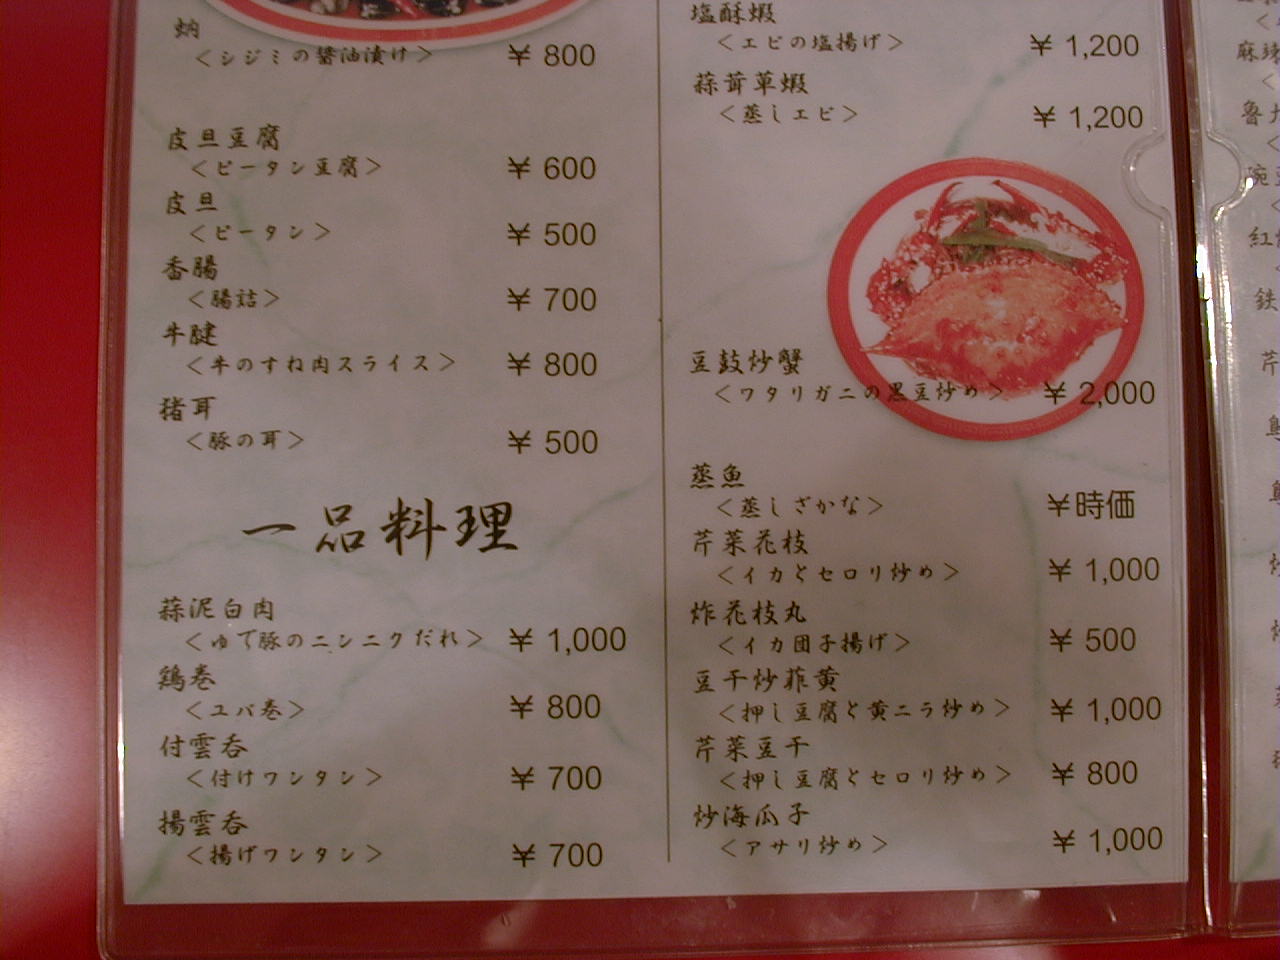 蚋
<シジミの醤油漬け> ¥ 800
皮旦豆腐
<ピータン豆腐> ¥ 600
皮旦
<ピータン> ¥ 500
香腸
<腸詰> ¥ 700
牛腱
<牛のすね肉スライス> ¥ 800
猪耳
<豚の耳> ¥ 500
一品料理
蒜泥白肉
<ゆで豚のニンニクだれ> ¥ 1,000
鶏巻
<ユバ巻> ¥ 800
付雲呑
<付けワンタン> ¥ 700
揚雲呑
<揚げワンタン> ¥ 700
塩酥蝦
<エビの塩揚げ> ¥ 1,200
蒜茸草蝦
<蒸しエビ> ¥ 1,200
豆鼓炒蟹
<ワタリガニの黒豆炒め> ¥ 2,000
蒸魚
<蒸しざかな> ¥時価
芹菜花枝
<イカとセロリ炒め> ¥ 1,000
炸花枝丸
<イカ団子揚げ> ¥ 500
豆干炒韮黄
<押し豆腐と黄ニラ炒め> ¥ 1,000
芹菜豆干
<押し豆腐とセロリ炒め> ¥ 800
炒海瓜子
<アサリ炒め> ¥ 1,000
麻辣
魯
紅
鉄
芹